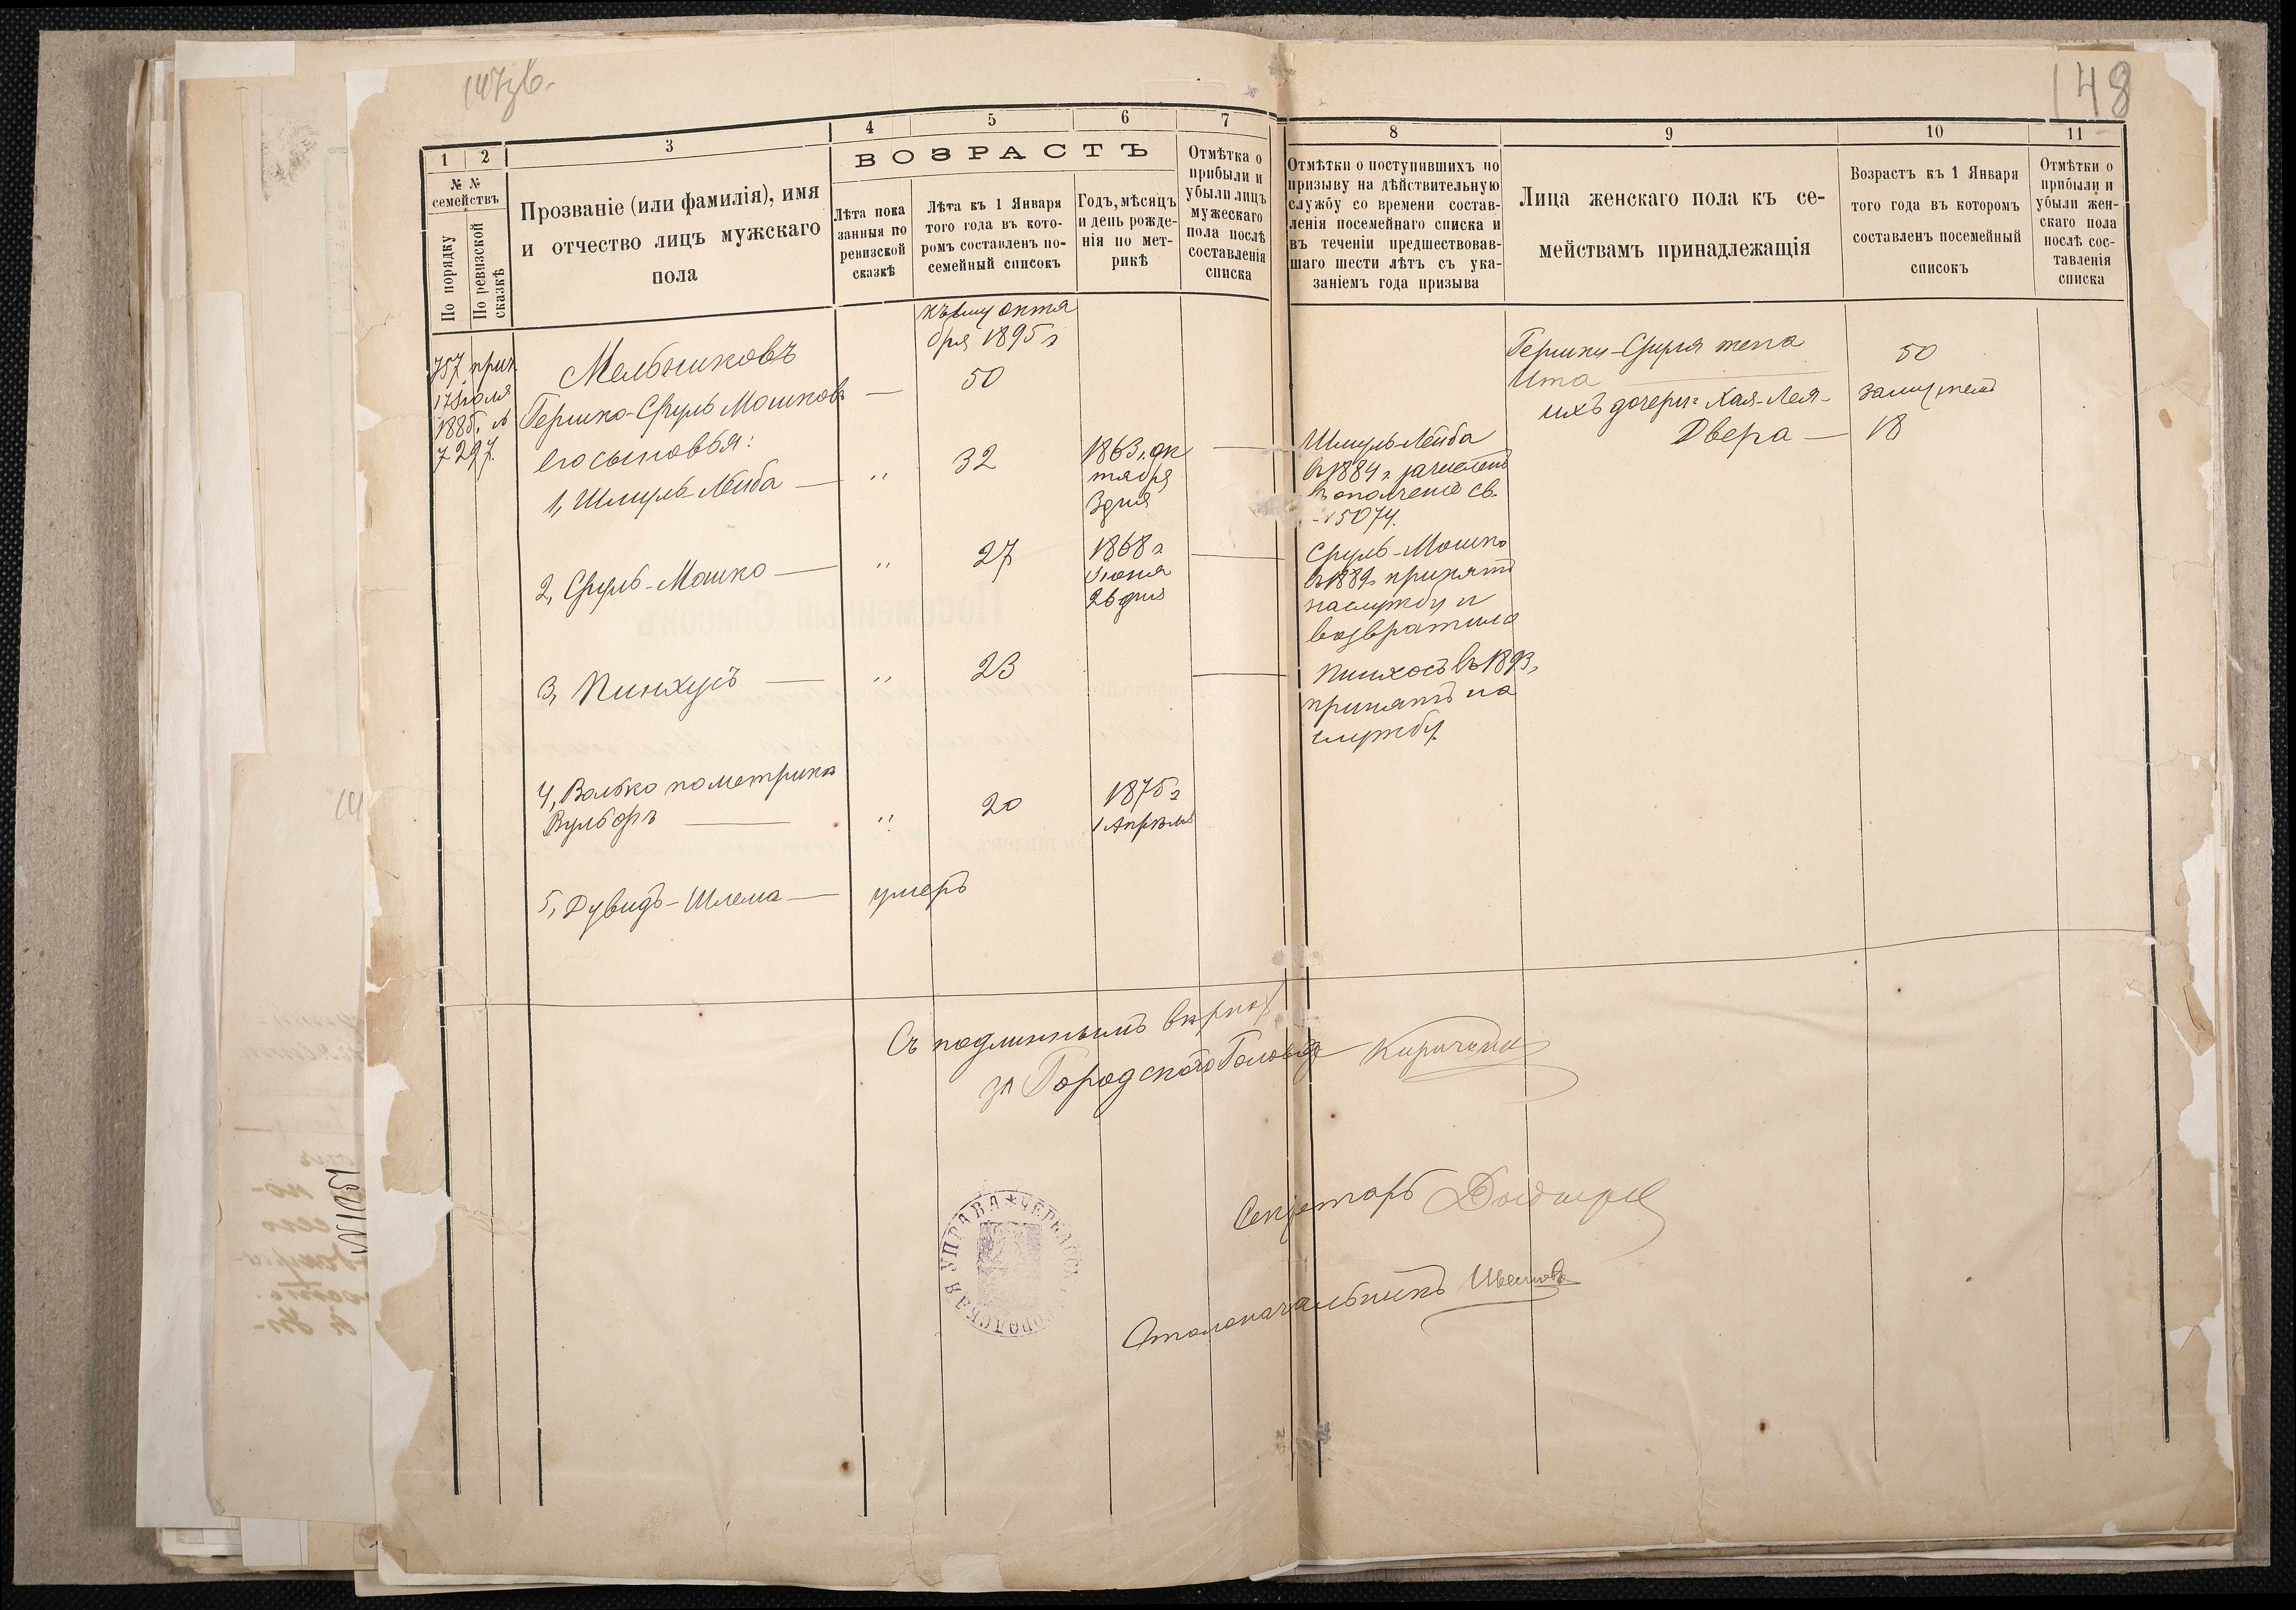 148
1 2 3 4 5 6 7 8 9 10 11
№ №
семействъ
По порядку
По ревизской
сказкѣ
Прозваніе (или фамилія), имя
и отчество лицъ мужскаго
пола
ВОЗРАСТЪ
Лѣта пока
занныя по
ревизской
сказкѣ
Лѣта къ 1 Января
того года въ кото-
ромъ составленъ по-
семейный списокъ
Годъ, мѣсяцъ
и день рожде-
нія по мет-
рикѣ
Отмѣтка о
прибыли и
убыли лицъ
мужескаго
пола послѣ
составленія
списка
Отмѣтки о поступившихъ по
призыву на дѣйствительную
службу со времени состав-
ленія посемейнаго списка и
въ теченіи предшествовав-
шаго шести лѣтъ съ ука-
заніемъ года призыва
Лица женскаго пола къ се-
мействамъ принадлежащія
Возрастъ къ 1 Января
того года въ которомъ
составленъ посемейный
списокъ
Отмѣтки о
прибыли и
убыли жен-
скаго пола
послѣ сос-
тавленія
списка
757 прич
17 Іюля
1885 г. №
7297.
Мельниковъ
Гершко-Сруль Мошковъ —
его сыновья:
1, Шмуль-Лейба — "
2, Сруль-Мошко — "
3, Пинхусъ — "
4, Волько по метрикѣ
Вульфъ — "
5, Дувидъ-Шлема — умеръ
къ 1му октя
бря 1895 г
50
32
27
23
20
1863 г. ок
тября
3 дня
1868 г
Іюня
26 дня
1875 г
1 Апрѣля
Шмуль-Лейба
въ 1884 г. зачисленъ
въ ополченіе св.
№ 5074.
Сруль-Мошко
въ 1889 г принятъ
на службу и
возвратился
Пинхосъ въ 1893 г
принятъ на
службу
Гершки-Сруля жена
Ита
ихъ дочери: Хая-Лея -
Двера —
50
замужемъ
18
Съ подлиннымъ вѣрно
за Городского Голову Кириченко
Секретарь
Столоначальникъ
УПРАВА * ЧЕРКАССК ГОРОДСКАЯ